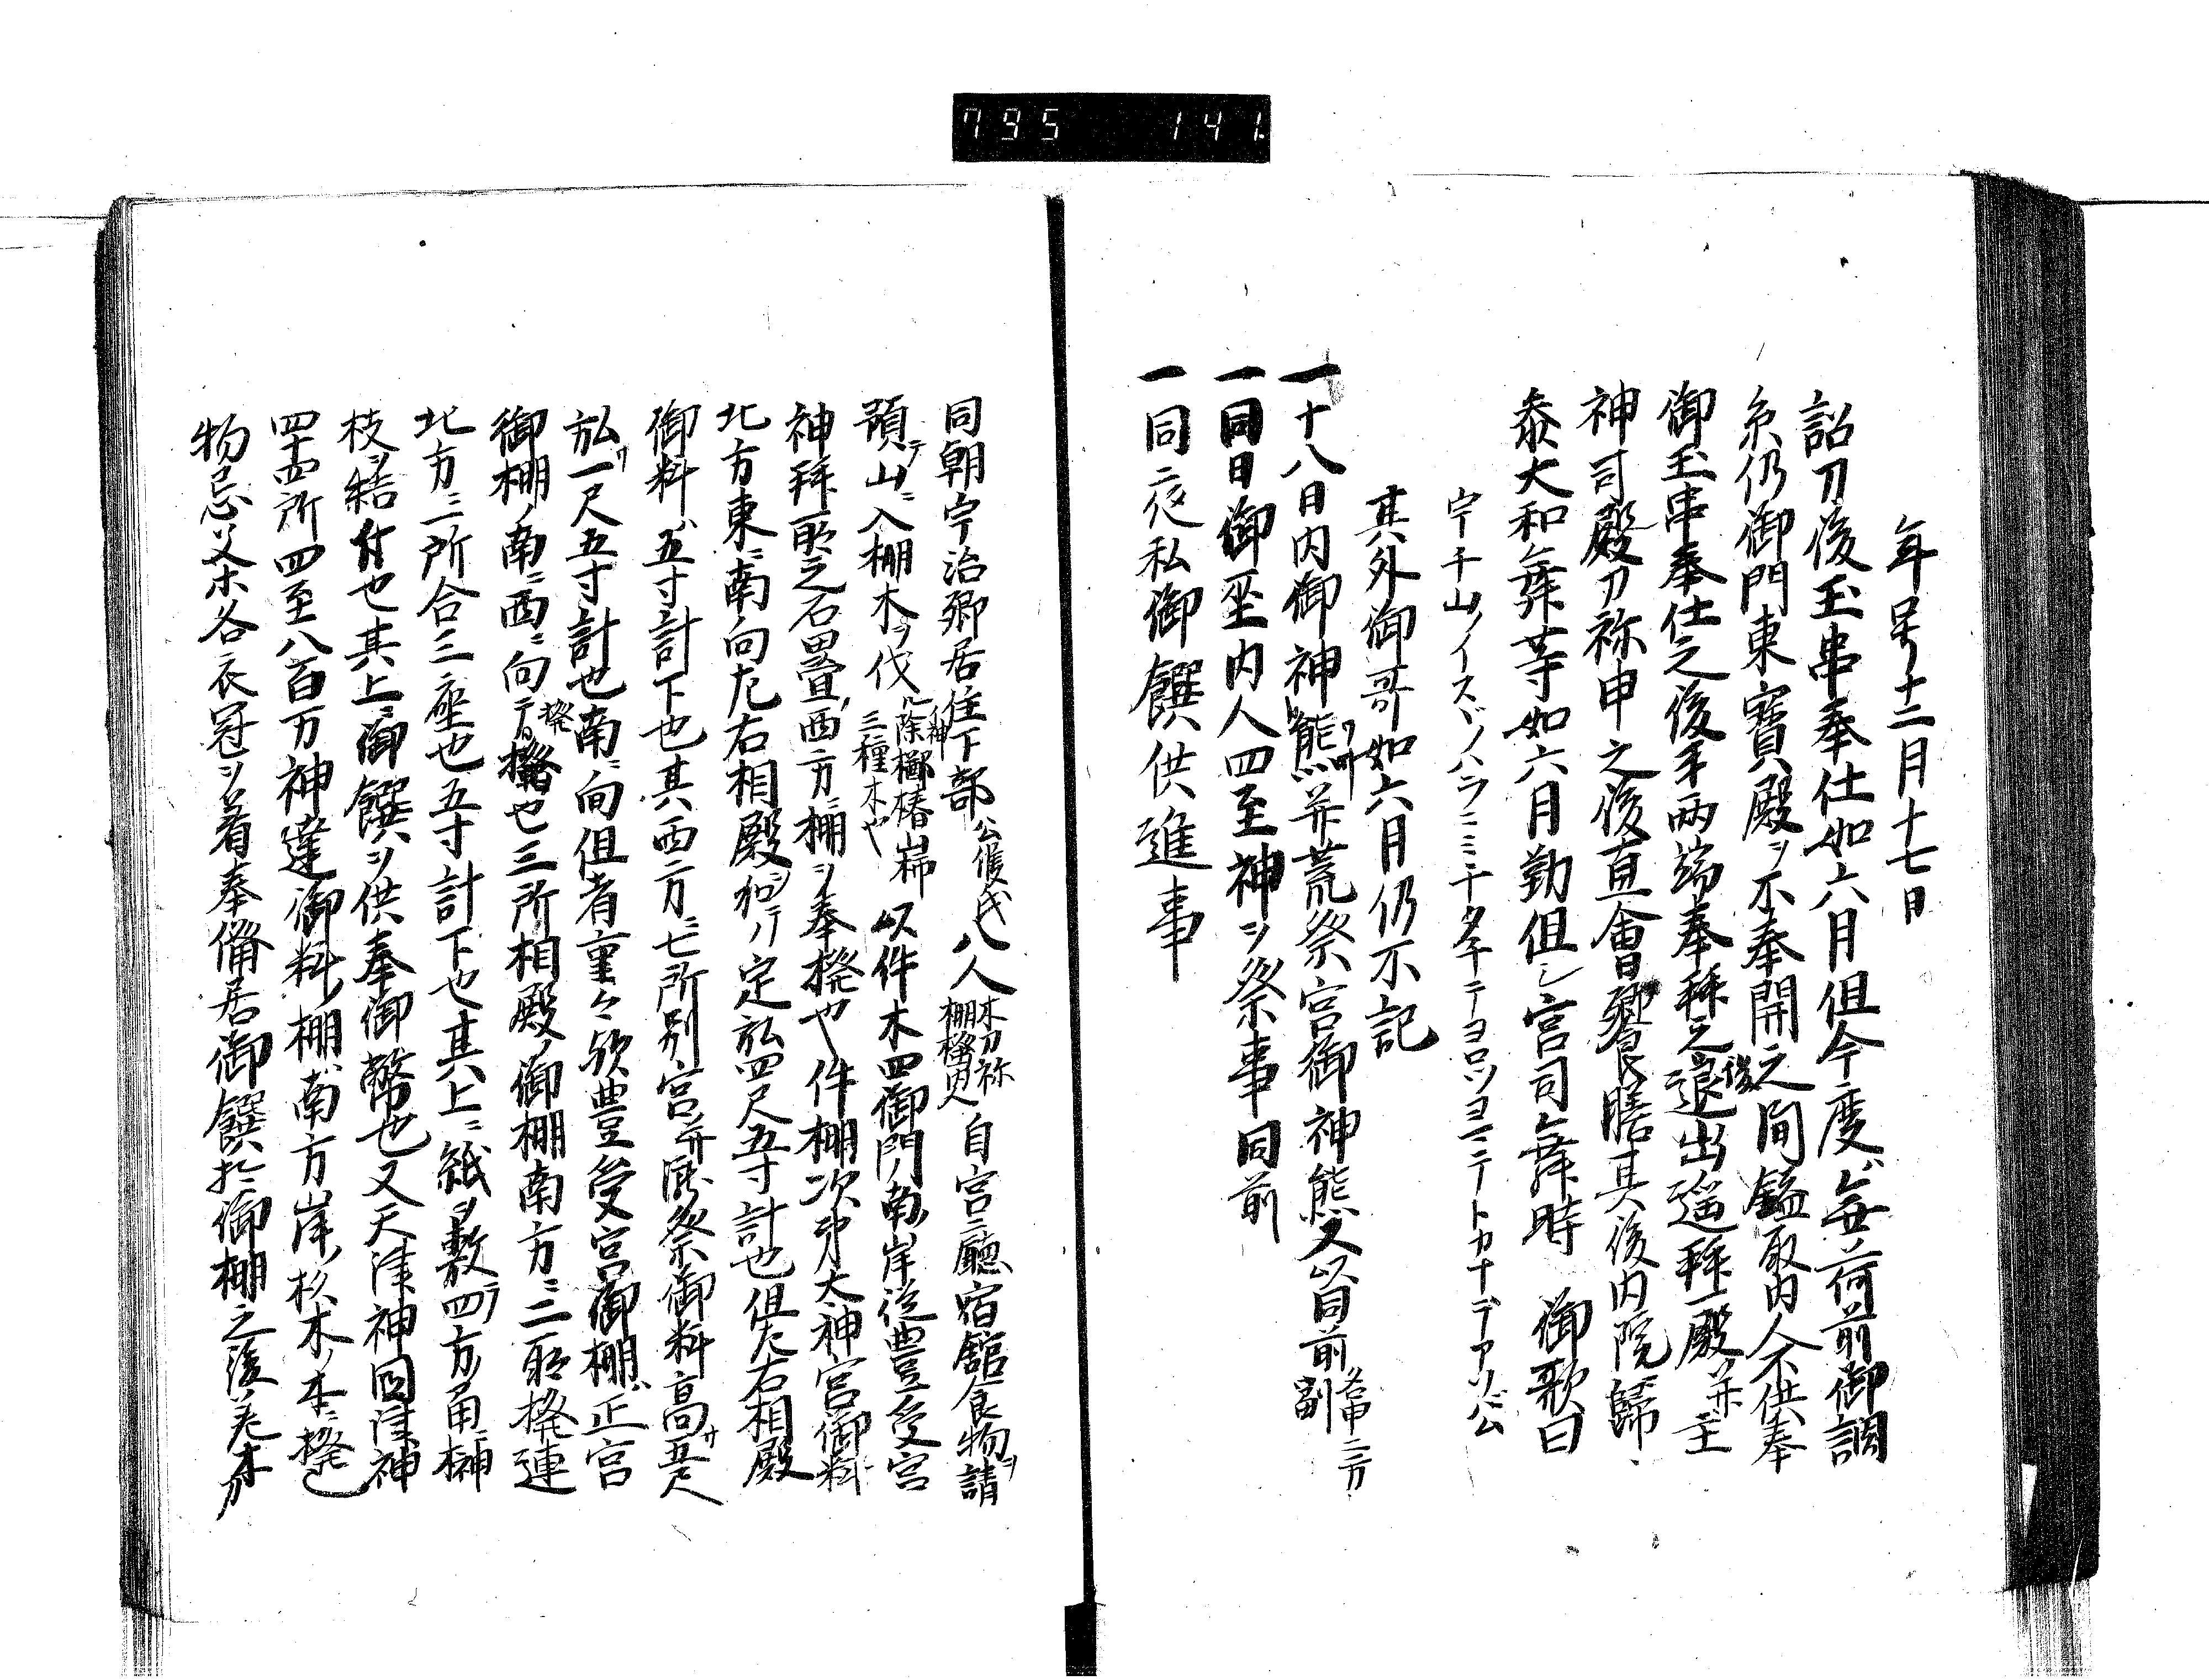 795 141
年号十二月十七日
詔刀後玉串奉仕如六月但今度ハ無荷前御調
糸仍御門東寶殿ヲ不奉開之間鎰取内人不供奉
御玉串奉仕之後手両端奉拜之後退出遥拜殿并主
神司殿刀祢申之後直會饗膳其後内院ニ歸
参大和舞等如六月勤但シ宮司舞時 御歌曰
其外御哥如六月仍不記
一十八日内御神熊并荒祭宮御神熊又以同前
一同日御巫内人四至神ヲ祭事同前
一同夜私御饌供進事
同朝宇治郷居住下部八人 自宮廳宿舘食物ヲ請
預テ山ニ入棚木ヲ伐 以件木四御門南岸従豊受宮
神拜所之石畳西方ニ棚ヲ奉橙也件棚次第大神宮御料
北方東ニ南向左右相殿 定弘四尺五寸計也但左右相殿
御料ハ五寸計下也其西方ニ七所別宮并風祭御料高サ五尺
弘サ一尺五寸計也南ニ向但者重々歟豊受宮御棚ハ正宮
御棚ノ南ニ西ニ向テ 也三所相殿ノ御棚南方ニ二所 連
北方ニ三所合三座也五寸計下也其上ニ紙ヲ敷四方ノ角ニ榊
枝ヲ結付也其上ニ御饌ヲ供奉御幣也又天津神国津神
四十四所四至八百万神達御料ノ棚ハ南方岸ノ杉木ノ本ニ 也
物忌父等各衣冠ヲ着奉備居御饌於御棚之後